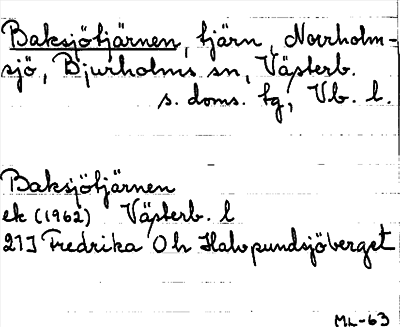 Baksjötjärnen, tjärn, Norrholm-
sjö, Bjurholms sn, Västerb.
s. doms. tg, Vb. l.
Baksjötjärnen
ek (1962) Västerb. l
21J Fredrika 0 h Halvpundsjöberget
ML-63